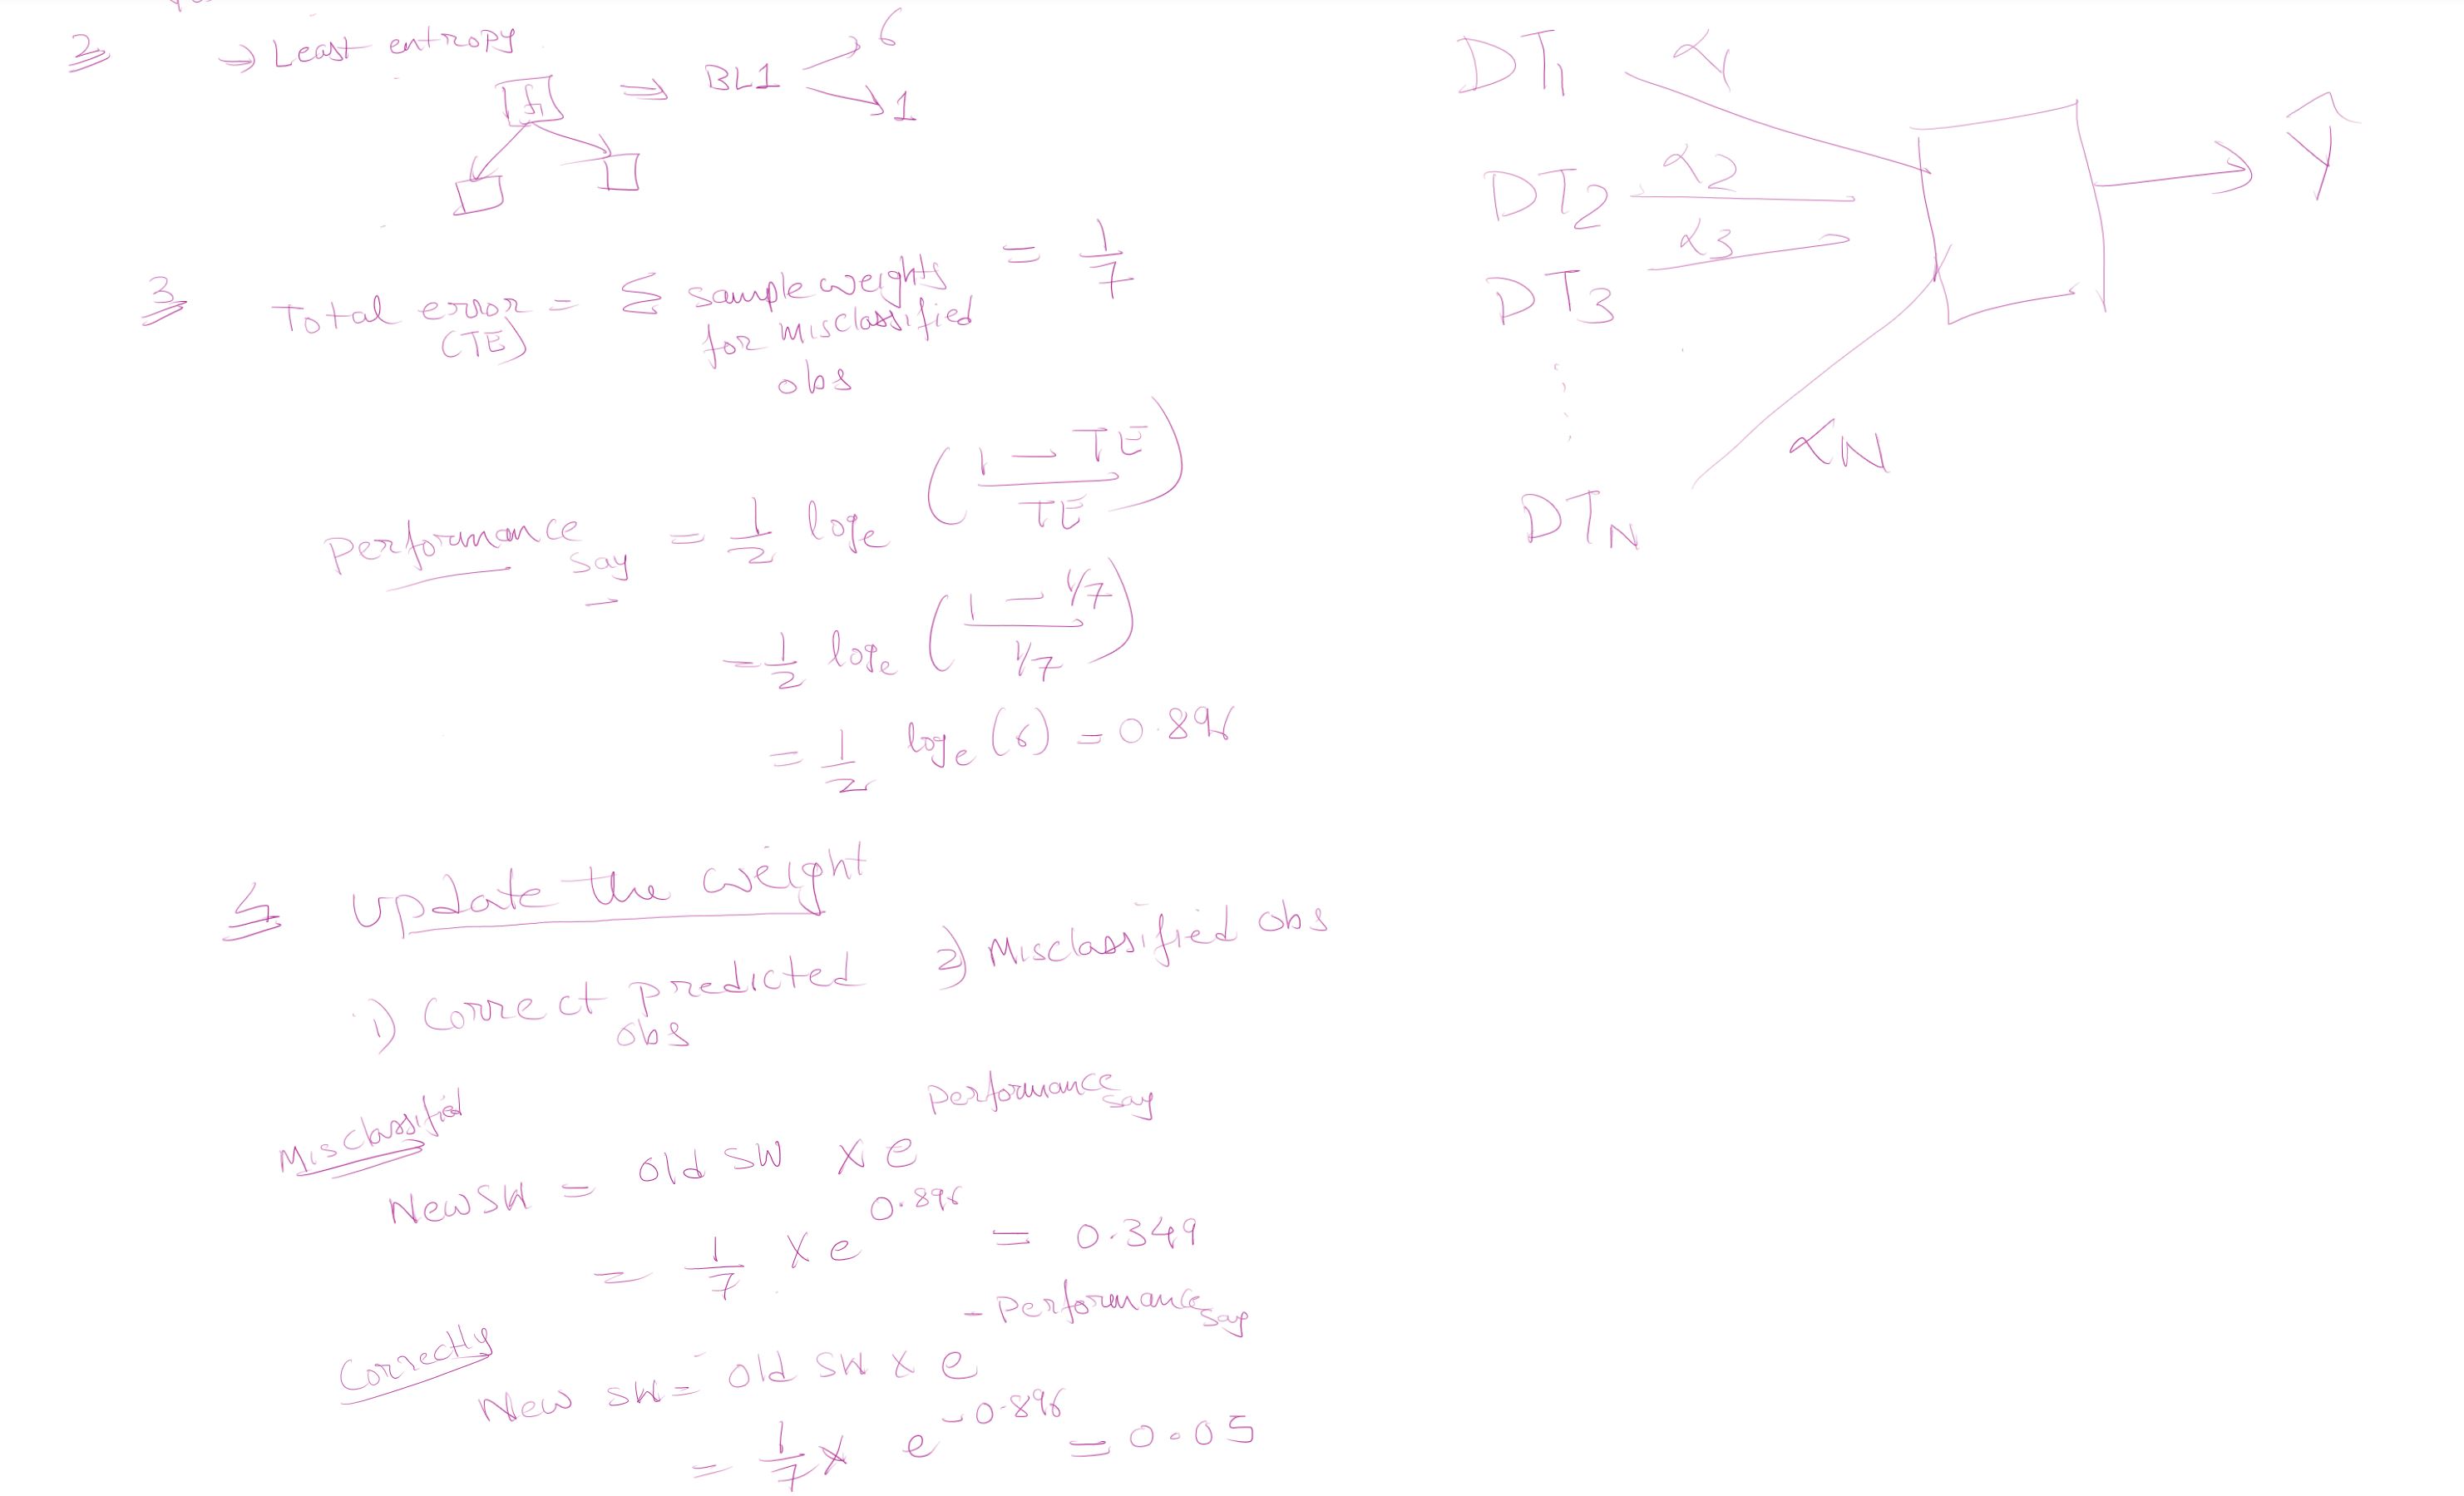 2 ⇒ Least entropy
f1 ⇒ BL1 → 6
→ 1
3 Total error (TE) = Σ sample weights for misclassified obs = 1/7
Performance say = 1/2 loge ((1 - TE) / TE)
= 1/2 loge ((1 - 1/7) / 1/7)
= 1/2 loge (6) = 0.896
4 Update the weight
1) Correct predicted obs 2) Misclassified obs
Misclassified
New SW = old SW x e^Performance say
= 1/7 x e^0.896 = 0.349
Correctly
New SW = old SW x e^-Performance say
= 1/7 x e^-0.896 = 0.05
DT1 α1
DT2 α2
DT3 α3
DTN αN
Ŷ